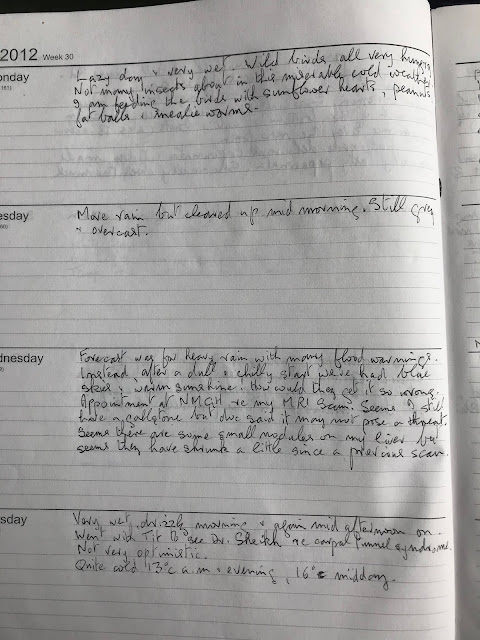 2012 Week 30
onday
Lazy day & very wet. Wild birds all very hungry
Not many insects about in this miserably cold weather
I am feeding the birds with sunflower hearts, peanuts
fat balls & mealie worms.
esday
More rain but cleared up mid morning. Still grey
& overcast.
dnesday
Forecast was for heavy rain with many flood warnings.
Instead after a dull & chilly start we've had blue
skies & warm sunshine! How could they get it so wrong.
Appointment at NMGH re my MRI Scan. Seems I still
have a gallstone but doc said it may not pose a threat.
Seems there are some small nodules on my liver but
seems they have shrunk a little since a previous scan.
sday
Very wet, drizzly morning & again mid afternoon on.
Went with to see Dr. Sheikh re carpal tunnel syndrome.
Not very optimistic.
Quite cold 13°c a.m. & evening, 16°c midday.